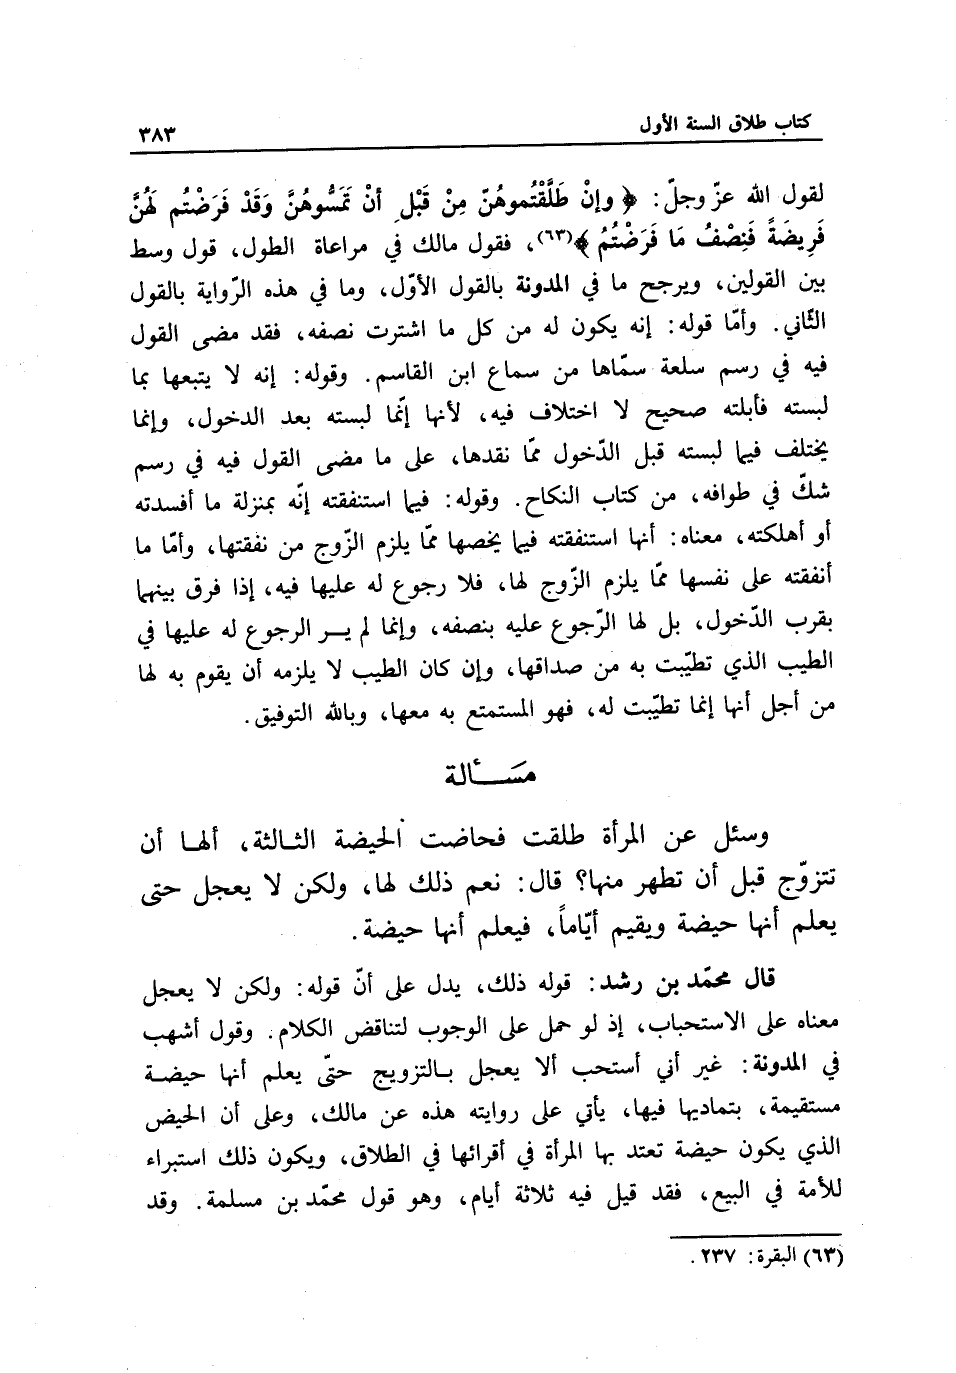 كتاب طلاق السنة الأول
٣٨٣
لقول الله عزّ وجلّ: ﴿ وإنْ طَلَّقْتُموهُنّ مِنْ قَبْلِ أَنْ تَمَسُّوهُنَّ وَقَدْ فَرَضْتُم لَهُنَّ
فَرِيضَةً فَنِصْفُ مَا فَرَضْتُمُ ﴾(٦٣)، فقول مالك في مراعاة الطول، قول وسط
بين القولين، ويرجح ما في المدونة بالقول الأوّل، وما في هذه الرّواية بالقول
الثّاني. وأمّا قوله: إنه يكون له من كل ما اشترت نصفه، فقد مضى القول
فيه في رسم سلعة سمّاها من سماع ابن القاسم. وقوله: إنه لا يتبعها بما
لبسته فأبلته صحيح لا اختلاف فيه، لأنها إنّما لبسته بعد الدخول، وإنما
يختلف فيما لبسته قبل الدّخول ممّا نقدها، على ما مضى القول فيه في رسم
شكّ في طوافه، من كتاب النكاح. وقوله: فيما استنفقته إنّه بمنزلة ما أفسدته
أو أهلكته، معناه: أنها استنفقته فيما يخصها ممّا يلزم الزّوج من نفقتها، وأمّا ما
أنفقته على نفسها ممّا يلزم الزّوج لها، فلا رجوع له عليها فيه، إذا فرق بينهما
بقرب الدّخول، بل لها الرّجوع عليه بنصفه، وإنما لم يـر الرجوع له عليها في
الطيب الذي تطيّبت به من صداقها، وإن كان الطيب لا يلزمه أن يقوم به لها
من أجل أنها إنما تطيّبت له، فهو المستمتع به معها، وبالله التوفيق.
مَسْـألة
وسئل عن المرأة طلقت فحاضت الحيضة الثـالثة، ألهـا أن
تتزوّج قبل أن تطهر منها؟ قال: نعم ذلك لها، ولكن لا يعجل حتى
يعلم أنها حيضة ويقيم أيّاماً، فيعلم أنها حيضة.
قال محمّد بن رشد: قوله ذلك، يدل على أنّ قوله: ولكن لا يعجل
معناه على الاستحباب، إذ لو حمل على الوجوب لتناقض الكلام. وقول أشهب
في المدونة: غير أني أستحب ألا يعجل بـالتزويج حتّى يعلم أنها حيضـة
مستقيمة، بتماديها فيها، يأتي على روايته هذه عن مالك، وعلى أن الحيض
الذي يكون حيضة تعتد بها المرأة في أقرائها في الطلاق، ويكون ذلك استبراء
للأمة في البيع، فقد قيل فيه ثلاثة أيام، وهو قول محمّد بن مسلمة. وقد
(٦٣) البقرة: ٢٣٧.